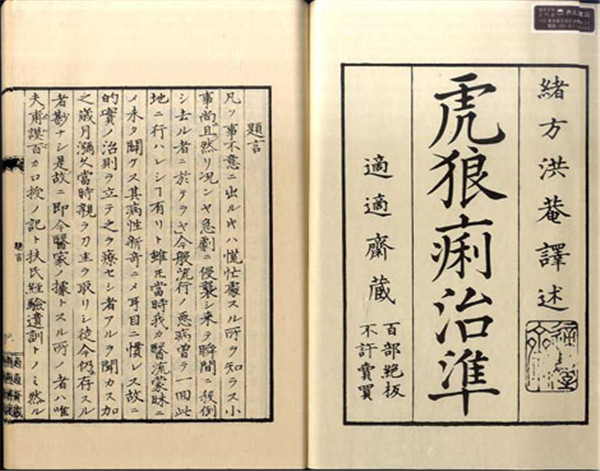 緒方洪菴譯述
虎狼痢治準
適適齋藏
百部絶板
不許賣買
題言
凡ソ事不意ニ出ルヤハ慌忙處スル所ヲ知ラス小
事尚且然リ况ンヤ急劇ニ侵襲シ来テ瞬間ニ殺倒
シ去ル者ニ於テヲヤ今般流行ノ悪病曽テ一回此
地ニ行ハレシヿ有リト雖𪜈當時我カ醫流蒙昧ニ
〆未タ闢ケス其病性新奇ニ〆耳目ニ慣レス故ニ
的實ノ治則ヲ立テ之ヲ療セシ者アルヲ聞カス加
之歳月瀰久當時親ラ刀圭ヲ取リシ徒今仍存スル
者尠ナシ是故ニ即今醫家ノ據トスル所ノ者ハ唯
夫甫謨百カ口授ノ記ト扶氏經驗遺訓トノミ然ル
題言